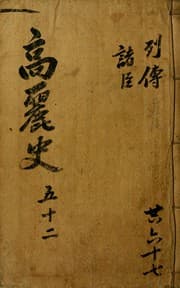 列傳
諸臣
共六十七
高麗史
五十二